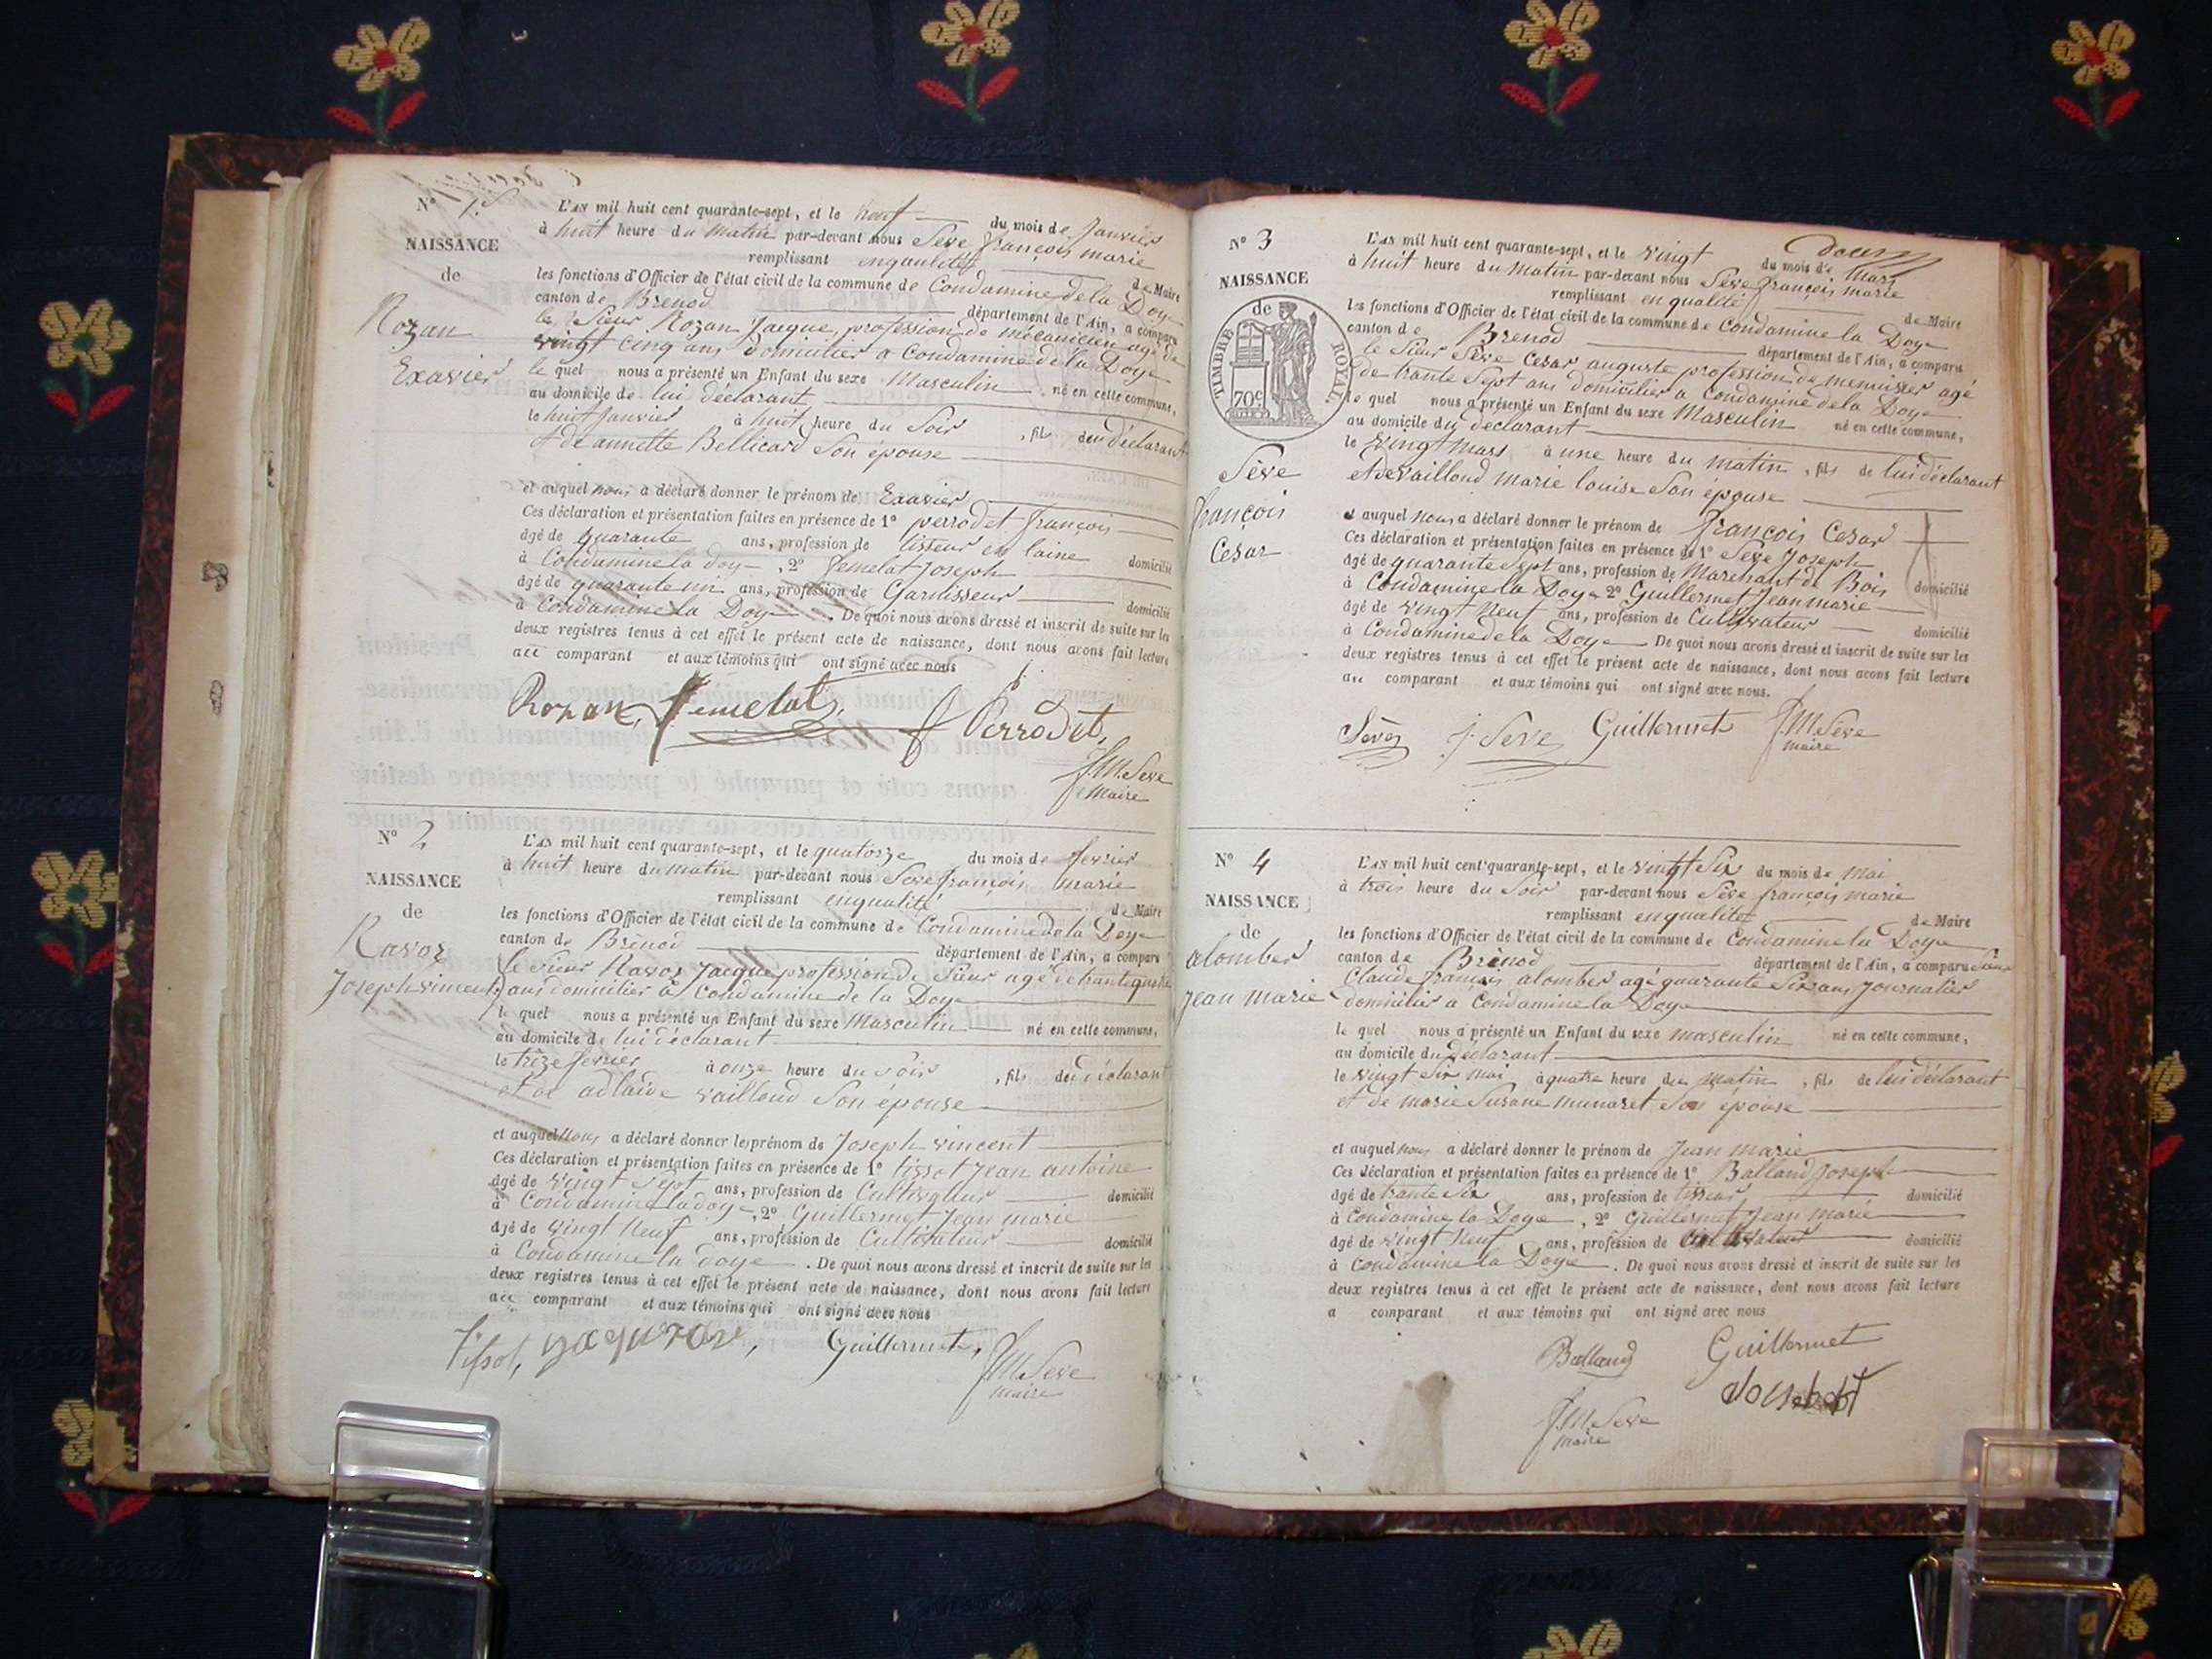 N° 1er
NAISSANCE
de
Rozan
Exavier
L'AN mil huit cent quarante-sept, et le neuf du mois de Janvier
à huit heure du matin par-devant nous Seve françois marie
remplissant enqualité de Maire
les fonctions d'Officier de l'état civil de la commune de Condamine de la Doye
canton de Brenod département de l'Ain, a comparu
le Sieur Rozan Jacque, profession de mécanicien agé de
vingt cinq ans domicilier a Condamine de la Doye
le quel nous a présenté un Enfant du sexe Masculin né en cette commune,
au domicile de lui déclarant
le huit Janvier à huit heure du Soir, fils du déclarant
et de annette Bellicard Son épouse
et auquel nous a déclaré donner le prénom de Exavier
Ces déclaration et présentation faites en présence de 1° perrodet françois
âgé de quarante ans, profession de tisseur en laine domicilié
à Condamine la doy, 2° Jemelat Joseph
âgé de quarante ans, profession de Garnisseur domicilié
à Condamine la Doye. De quoi nous avons dressé et inscrit de suite sur les
deux registres tenus à cet effet le présent acte de naissance, dont nous avons fait lecture
au comparant et aux témoins qui ont signé avec nous
Rozan, Jemelat, f Perrodet,
f.M. Seve
Maire
N° 2
NAISSANCE
de
Ravoz
Joseph vincent
L'AN mil huit cent quarante-sept, et le quatorze du mois de fevrier
à huit heure du matin par-devant nous Seve françois marie
remplissant enqualité de Maire
les fonctions d'Officier de l'état civil de la commune de Condamine de la Doye
canton de Brénod département de l'Ain, a comparu
le Sieur Ravoz Jacque profession de Sieur agé de trante quatre
ans domicilier à Condamine de la Doye
le quel nous a présenté un Enfant du sexe Masculin né en cette commune,
au domicile de lui déclarant
le trèze fevrier à onze heure du soir, fils du déclarant
et de adlaide vailloud Son épouse
et auquel nous a déclaré donner le prénom de Joseph vincent
Ces déclaration et présentation faites en présence de 1° tissot Jean antoine
âgé de vingt sept ans, profession de Cultivateur domicilié
à Condamine la doye, 2° Guillermet Jean marie
âgé de vingt Neuf ans, profession de Cultivateur domicilié
à Condamine la doye. De quoi nous avons dressé et inscrit de suite sur les
deux registres tenus à cet effet le présent acte de naissance, dont nous avons fait lecture
au comparant et aux témoins qui ont signé avec nous
Tissot, Guillermet,
f.M. Seve
maire
N° 3
NAISSANCE
de
TIMBRE ROYAL
70c
Sève
françois
Cesar
L'AN mil huit cent quarante-sept, et le vingt du mois de Mars
à huit heure du matin par-devant nous Seve françois marie
remplissant en qualité de Maire
les fonctions d'Officier de l'état civil de la commune de Condamine la Doye
canton de Brenod département de l'Ain, a comparu
le Sieur Sève Cesar auguste profession de menuisier agé
de trante Sept ans domicilier a Condamine de la Doye
le quel nous a présenté un Enfant du sexe Masculin né en cette commune,
au domicile du déclarant
le vingt mars à une heure du matin, fils de lui déclarant
et de vailloud marie louise Son épouse
et auquel nous a déclaré donner le prénom de françois Cesar
Ces déclaration et présentation faites en présence de 1° Seve Joseph
âgé de quarante Sept ans, profession de Marchant de Bois domicilié
à Condamine la Doye 2° Guillermet Jean marie
âgé de vingt Neuf ans, profession de Cultivateur domicilié
à Condamine de la Doye De quoi nous avons dressé et inscrit de suite sur les
deux registres tenus à cet effet le présent acte de naissance, dont nous avons fait lecture
au comparant et aux témoins qui ont signé avec nous.
Sève j. Seve Guillermet f.M. Seve
maire
N° 4
NAISSANCE
de
alomber
Jean marie
L'AN mil huit cent quarante-sept, et le vingt Six du mois de mai
à trois heure du Soir par-devant nous Sève françois marie
remplissant en qualité de Maire
les fonctions d'Officier de l'état civil de la commune de Condamine la Doye
canton de Brénod département de l'Ain, a comparu Sieur
Claude françois alomber agé quarante Six ans Journalier
domicilier à Condamine la Doye
le quel nous a présenté un Enfant du sexe masculin né en cette commune,
au domicile du déclarant
le vingt Six mai à quatre heure du matin, fils de lui déclarant
et de marie Susane munaret Son épouse
et auquel nous a déclaré donner le prénom de Jean marie
Ces déclaration et présentation faites en présence de 1° Balland Joseph
âgé de trante Six ans, profession de tisseur domicilié
à Condamine la Doye, 2° Guillermet Jean marie
âgé de vingt Neuf ans, profession de Cultivateur domicilié
à Condamine la Doye. De quoi nous avons dressé et inscrit de suite sur les
deux registres tenus à cet effet le présent acte de naissance, dont nous avons fait lecture
a comparant et aux témoins qui ont signé avec nous
Balland Guillermet
f.M. Seve
maire